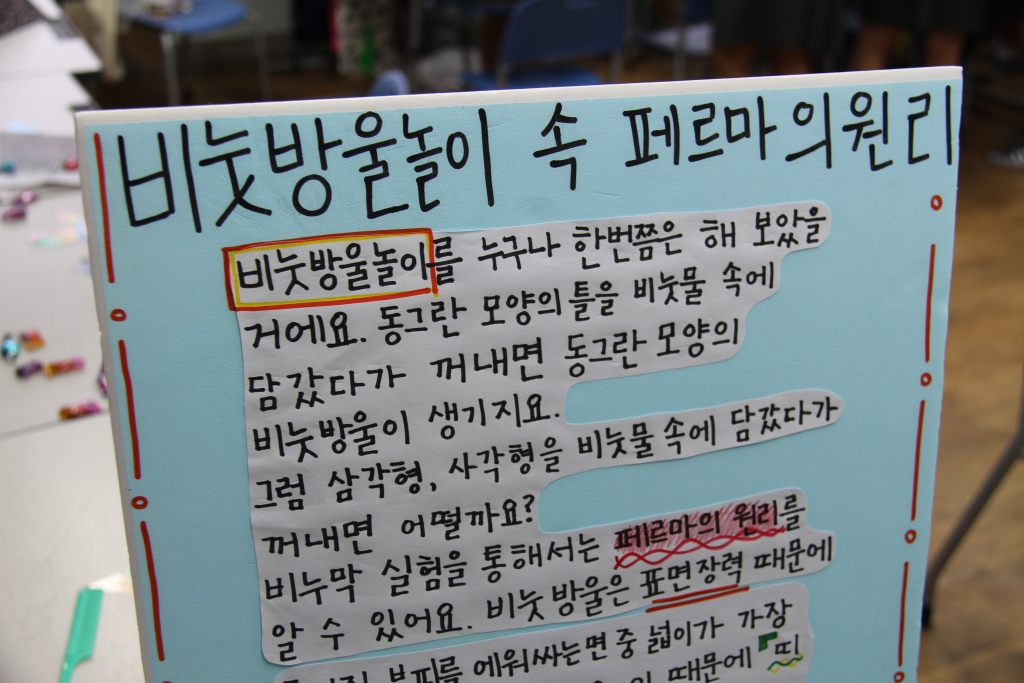 비눗방울놀이 속 페르마의 원리
비눗방울놀이를 누구나 한번쯤은 해 보았을
거에요. 동그란 모양의 틀을 비눗물 속에
담갔다가 꺼내면 동그란 모양의
비눗방울이 생기지요.
그럼 삼각형, 사각형을 비눗물 속에 담갔다가
꺼내면 어떨까요?
비누막 실험을 통해서는 페르마의 원리를
알 수 있어요. 비눗방울은 표면장력 때문에
부피를 에워싸는 면 중 넓이가 가장
때문에 "띠